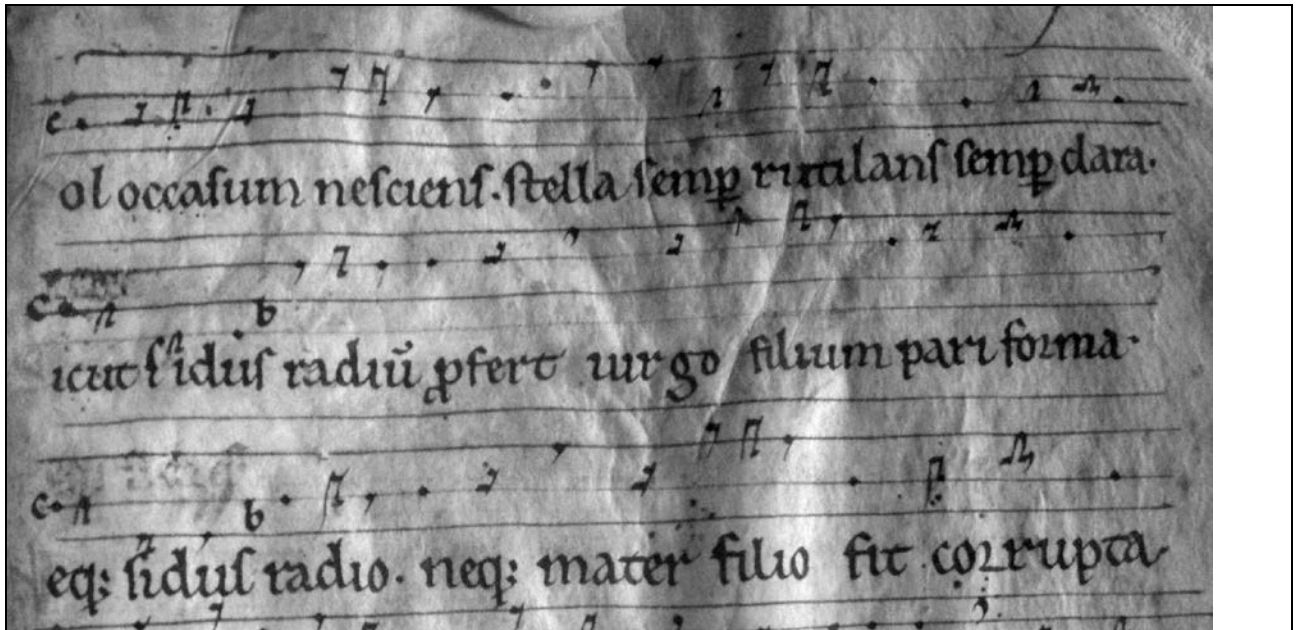 ol occasum nesciens. stella semp rutilans semp clara.
icut sidus radiū pfert uirgo filium pari forma.
eq; sidus radio. neq; mater filio fit corrupta